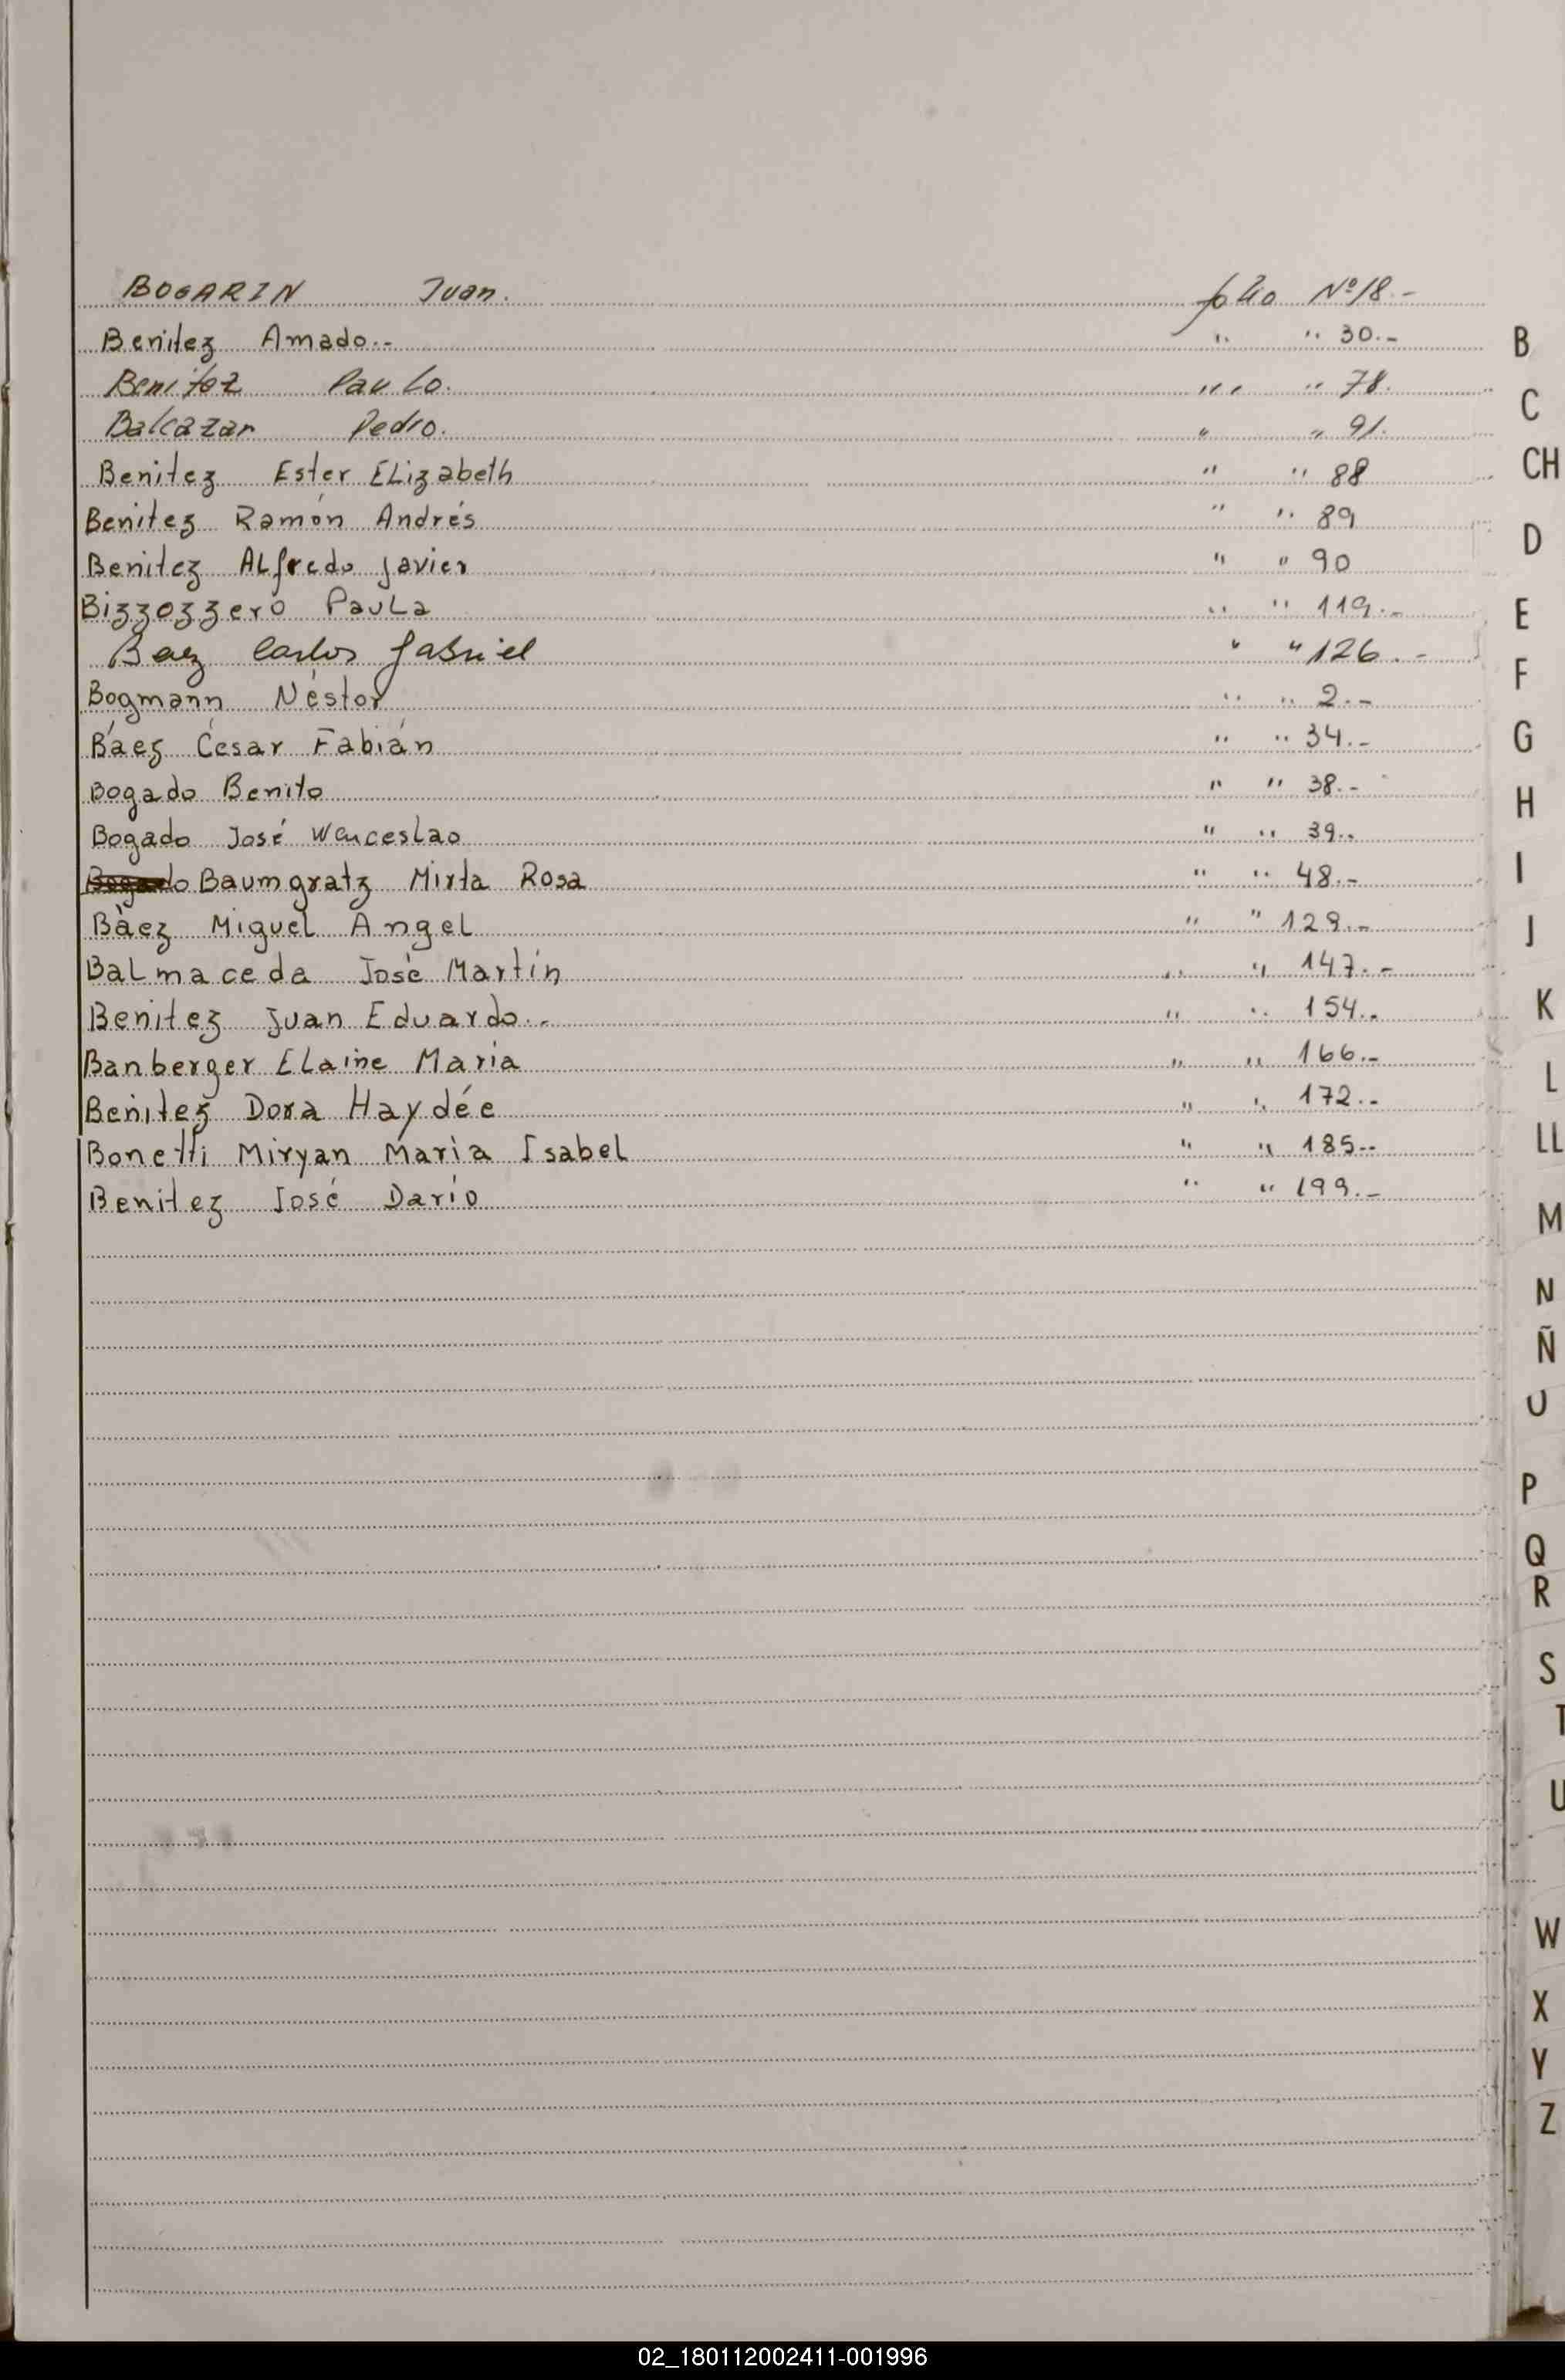 BOGARIN Juan. folio Nº 18.-
Benitez Amado.- " " 30.-
Benitez Paulo. " " 78.
Balcazar Pedro. " " 91.
Benitez Ester ELizabeth " " 88
Benitez Ramón Andrés " " 89
Benitez ALfredo Javier " " 90
Bizzozzero PauLa " " 119.-
Baez Carlos Gabriel " " 126.-
Bogmann Néstor " " 2.-
Báez César Fabián " " 34.-
Bogado Benito " " 38.-
Bogado José WencesLao " " 39..
Bogado Baumgratz Mirta Rosa " " 48.-
Bàez Miguel Angel " " 129.-
BaLmaceda Josè Martín " " 147.-
Benitez Juan Eduardo.- " " 154..
Banberger ELaine Maria " " 166.-
Benitez Dora Haydée " " 172.-
Bonetti Miryan Marìa Isabel " " 185--
Benitez José Darío " " 199.-
B
C
CH
D
E
F
G
H
I
J
K
L
LL
M
N
Ñ
O
P
Q
R
S
T
U
W
X
Y
Z
02_180112002411-001996